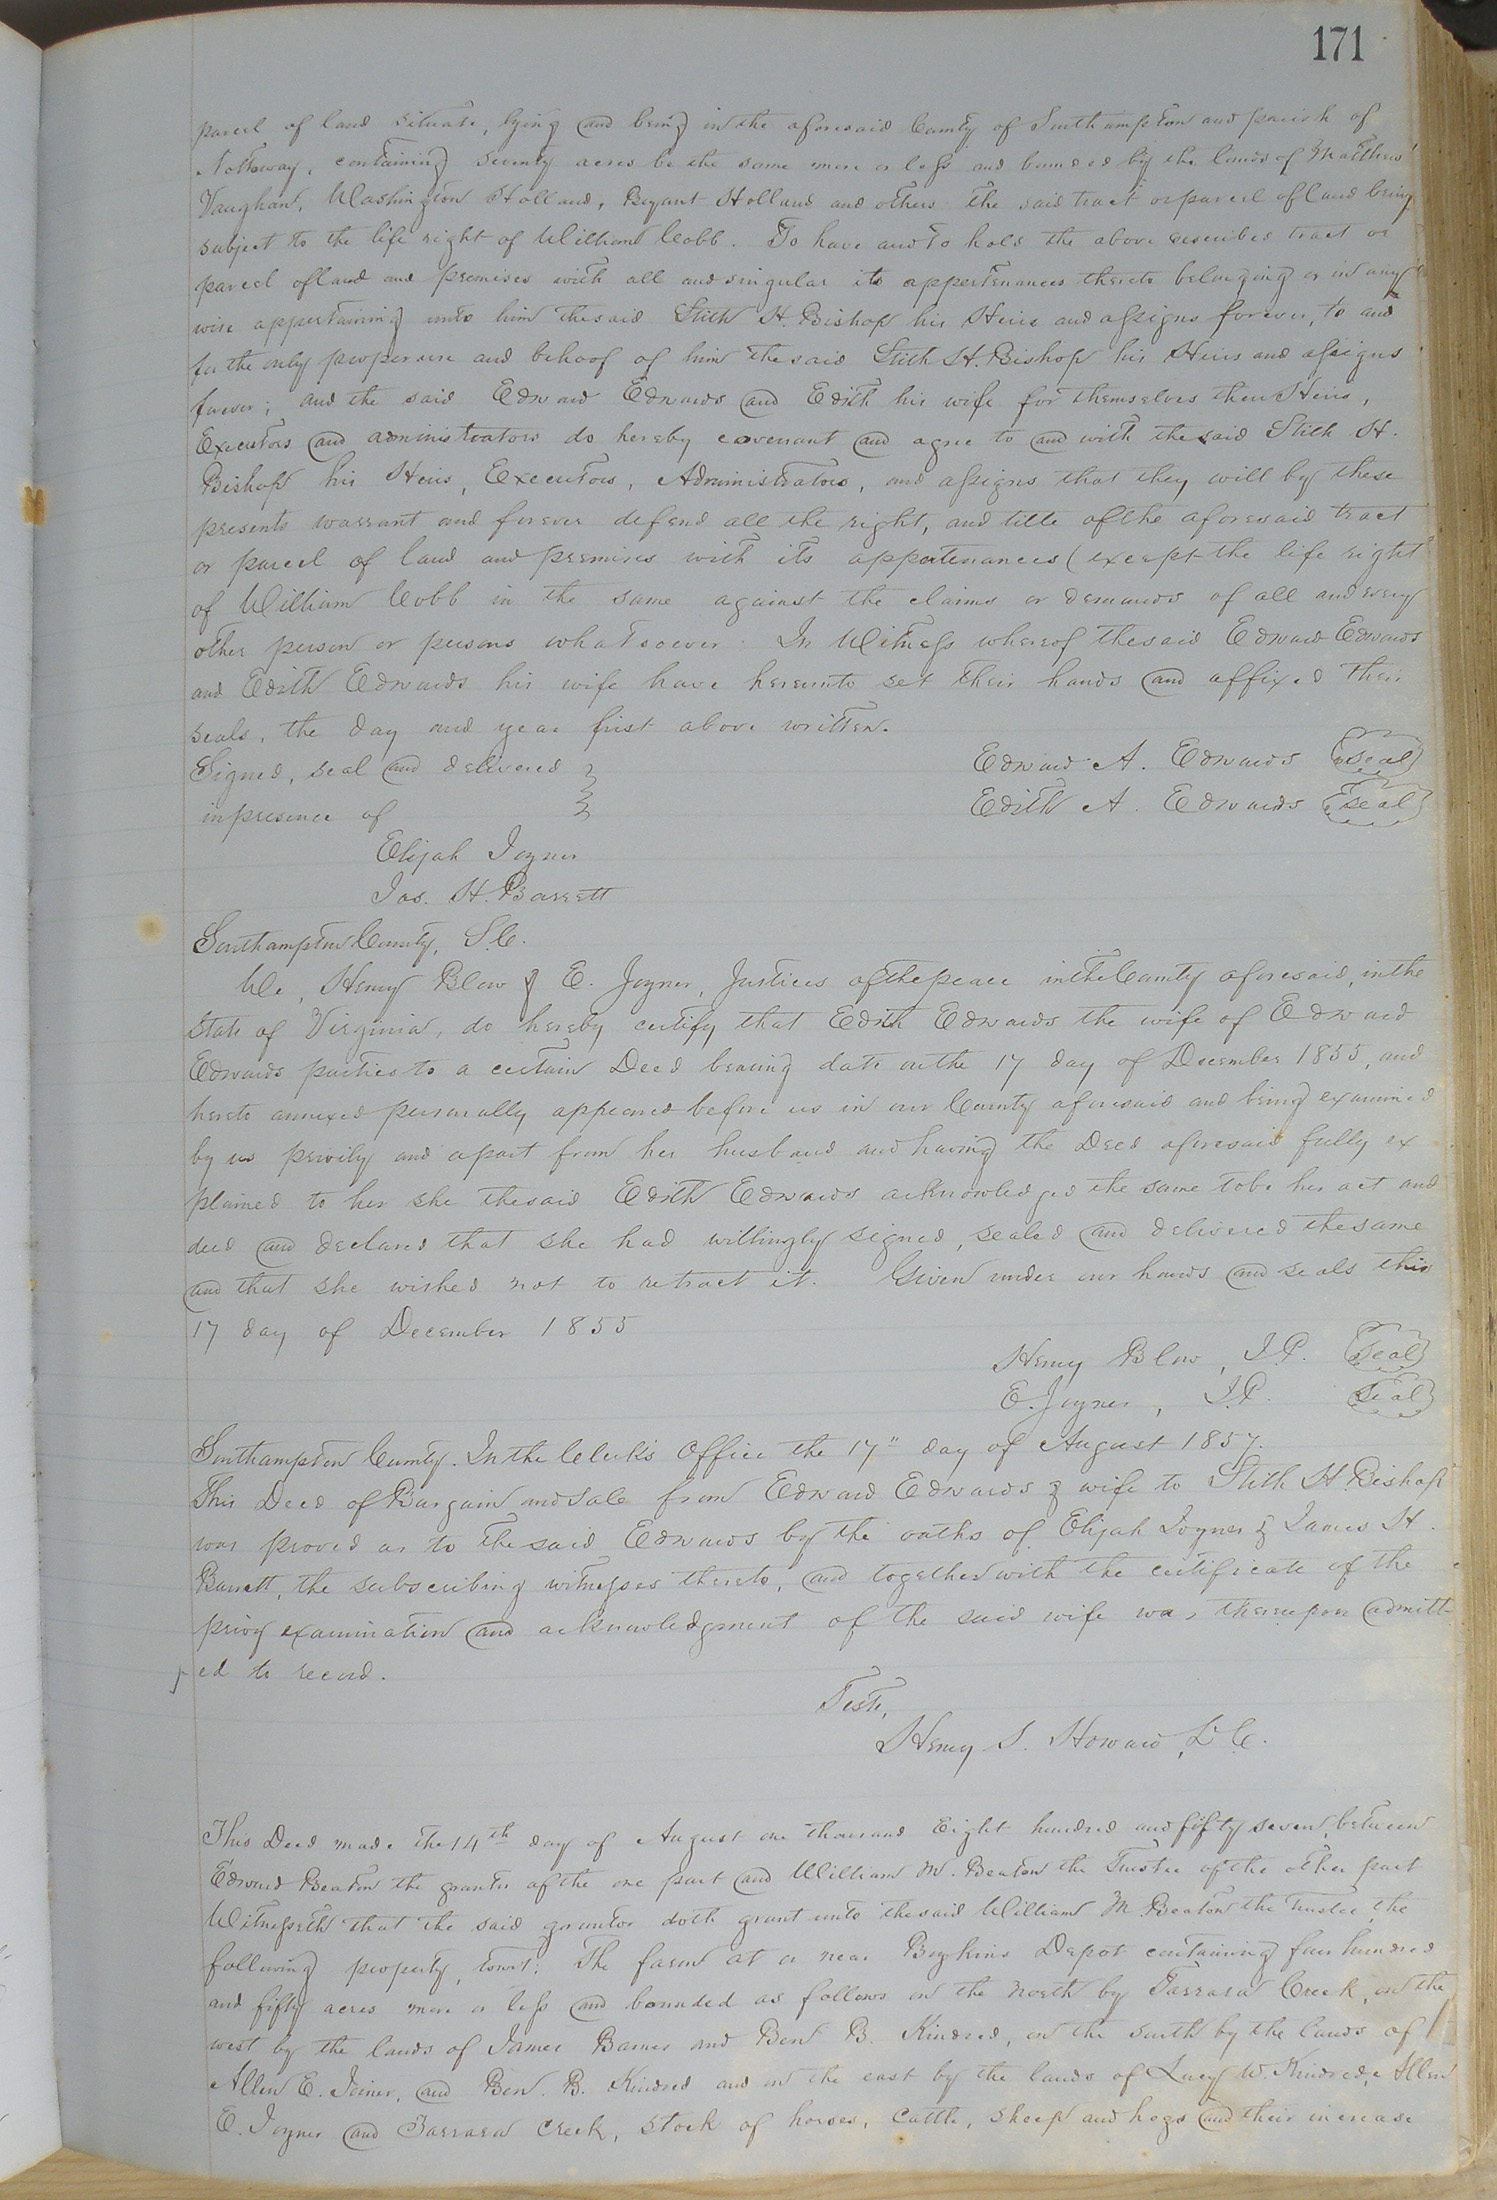 171
parcel of land situate, lying and being in the aforesaid County of Southampton and parish of
Nottoway, containing seventy acres be the same more or less and bounded by the lands of Matthew
Vaughan, Washington Holland, Bryant Holland and others the said tract or parcel of land being
subject to the life right of William Cobb. To have and to hold the above described tract or
parcel of land and premises with all and singular its appertenances thereto belonging or in any
wise appertaining unto him the said Stith H. Bishop his Heirs and assigns forever, to and
for the only proper use and behoof of him the said Stith H. Bishop his Heirs and assigns
forever; and the said Edward Edwards and Edith his wife for themselves their Heirs,
Executors and administrators do hereby covenant and agree to and with the said Stith H.
Bishop his Heirs, Executors, Administrators, and assigns that they will by these
presents warrant and forever defend all the right, and title of the aforesaid tract
or parcel of land and premises with its appertenances (except the life right
of William Cobb in the same against the claims or demands of all and every
other person or persons whatsoever. In Witness whereof the said Edward Edwards
and Edith Edwards his wife have hereunto set their hands and affixed their
seals, the day and year first above written.
Signed, seal and delivered } Edward A. Edwards (seal)
in presence of } Edith A. Edwards (seal)
Elijah Joyner
Jas. H. Barrett
Southampton County, S.C.
We, Henry Blow & E. Joyner, Justices of the peace in the County aforesaid, in the
State of Virginia, do hereby certify that Edith Edwards the wife of Edward
Edwards parties to a certain Deed bearing date on the 17 day of December 1855, and
hereto annexed personally appeared before us in our County aforesaid and being examined
by us privily and apart from her husband and having the Deed aforesaid fully ex
plained to her she the said Edith Edwards acknowledged the same to be her act and
deed and declared that she had willingly signed, sealed and delivered the same
and that she wished not to retract it. Given under our hands and seals this
17 day of December 1855
Henry Blow, J.P. (seal)
E. Joyner, J.P. (seal)
Southampton County. In the Clerk's Office the 17" day of August 1857.
This Deed of Bargain and sale from Edward Edwards & wife to Stith H Bishop
was proved as to the said Edwards by the oaths of Elijah Joyner & James H.
Barrett, the subscribing witnesses thereto, and together with the certificate of the
privy examination and acknowledgment of the said wife was thereupon admitt-
ed to record.
Teste,
Henry S. Howard, D.C.
This Deed made the 14th day of August one thousand Eight hundred and fifty seven, between
Edward Beaton the grantor of the one part and William M. Beaton the Trustee of the other part
Witnesseth that the said grantor doth grant unto the said William M Beaton the Trustee, the
following property, towit: The farm at or near Boykins Depot containing four hundred
and fifty acres more or less and bounded as follows on the north by Tarrara Creek, on the
west by the lands of James Barnes and Ben B. Kindred, on the south by the lands of
Allen E. Joiner, and Ben. B. Kindred and on the east by the lands of Lucy W. Kindred, Allen
E. Joyner and Tarrara Creek, stock of horses, cattle, sheep and hogs and their increase